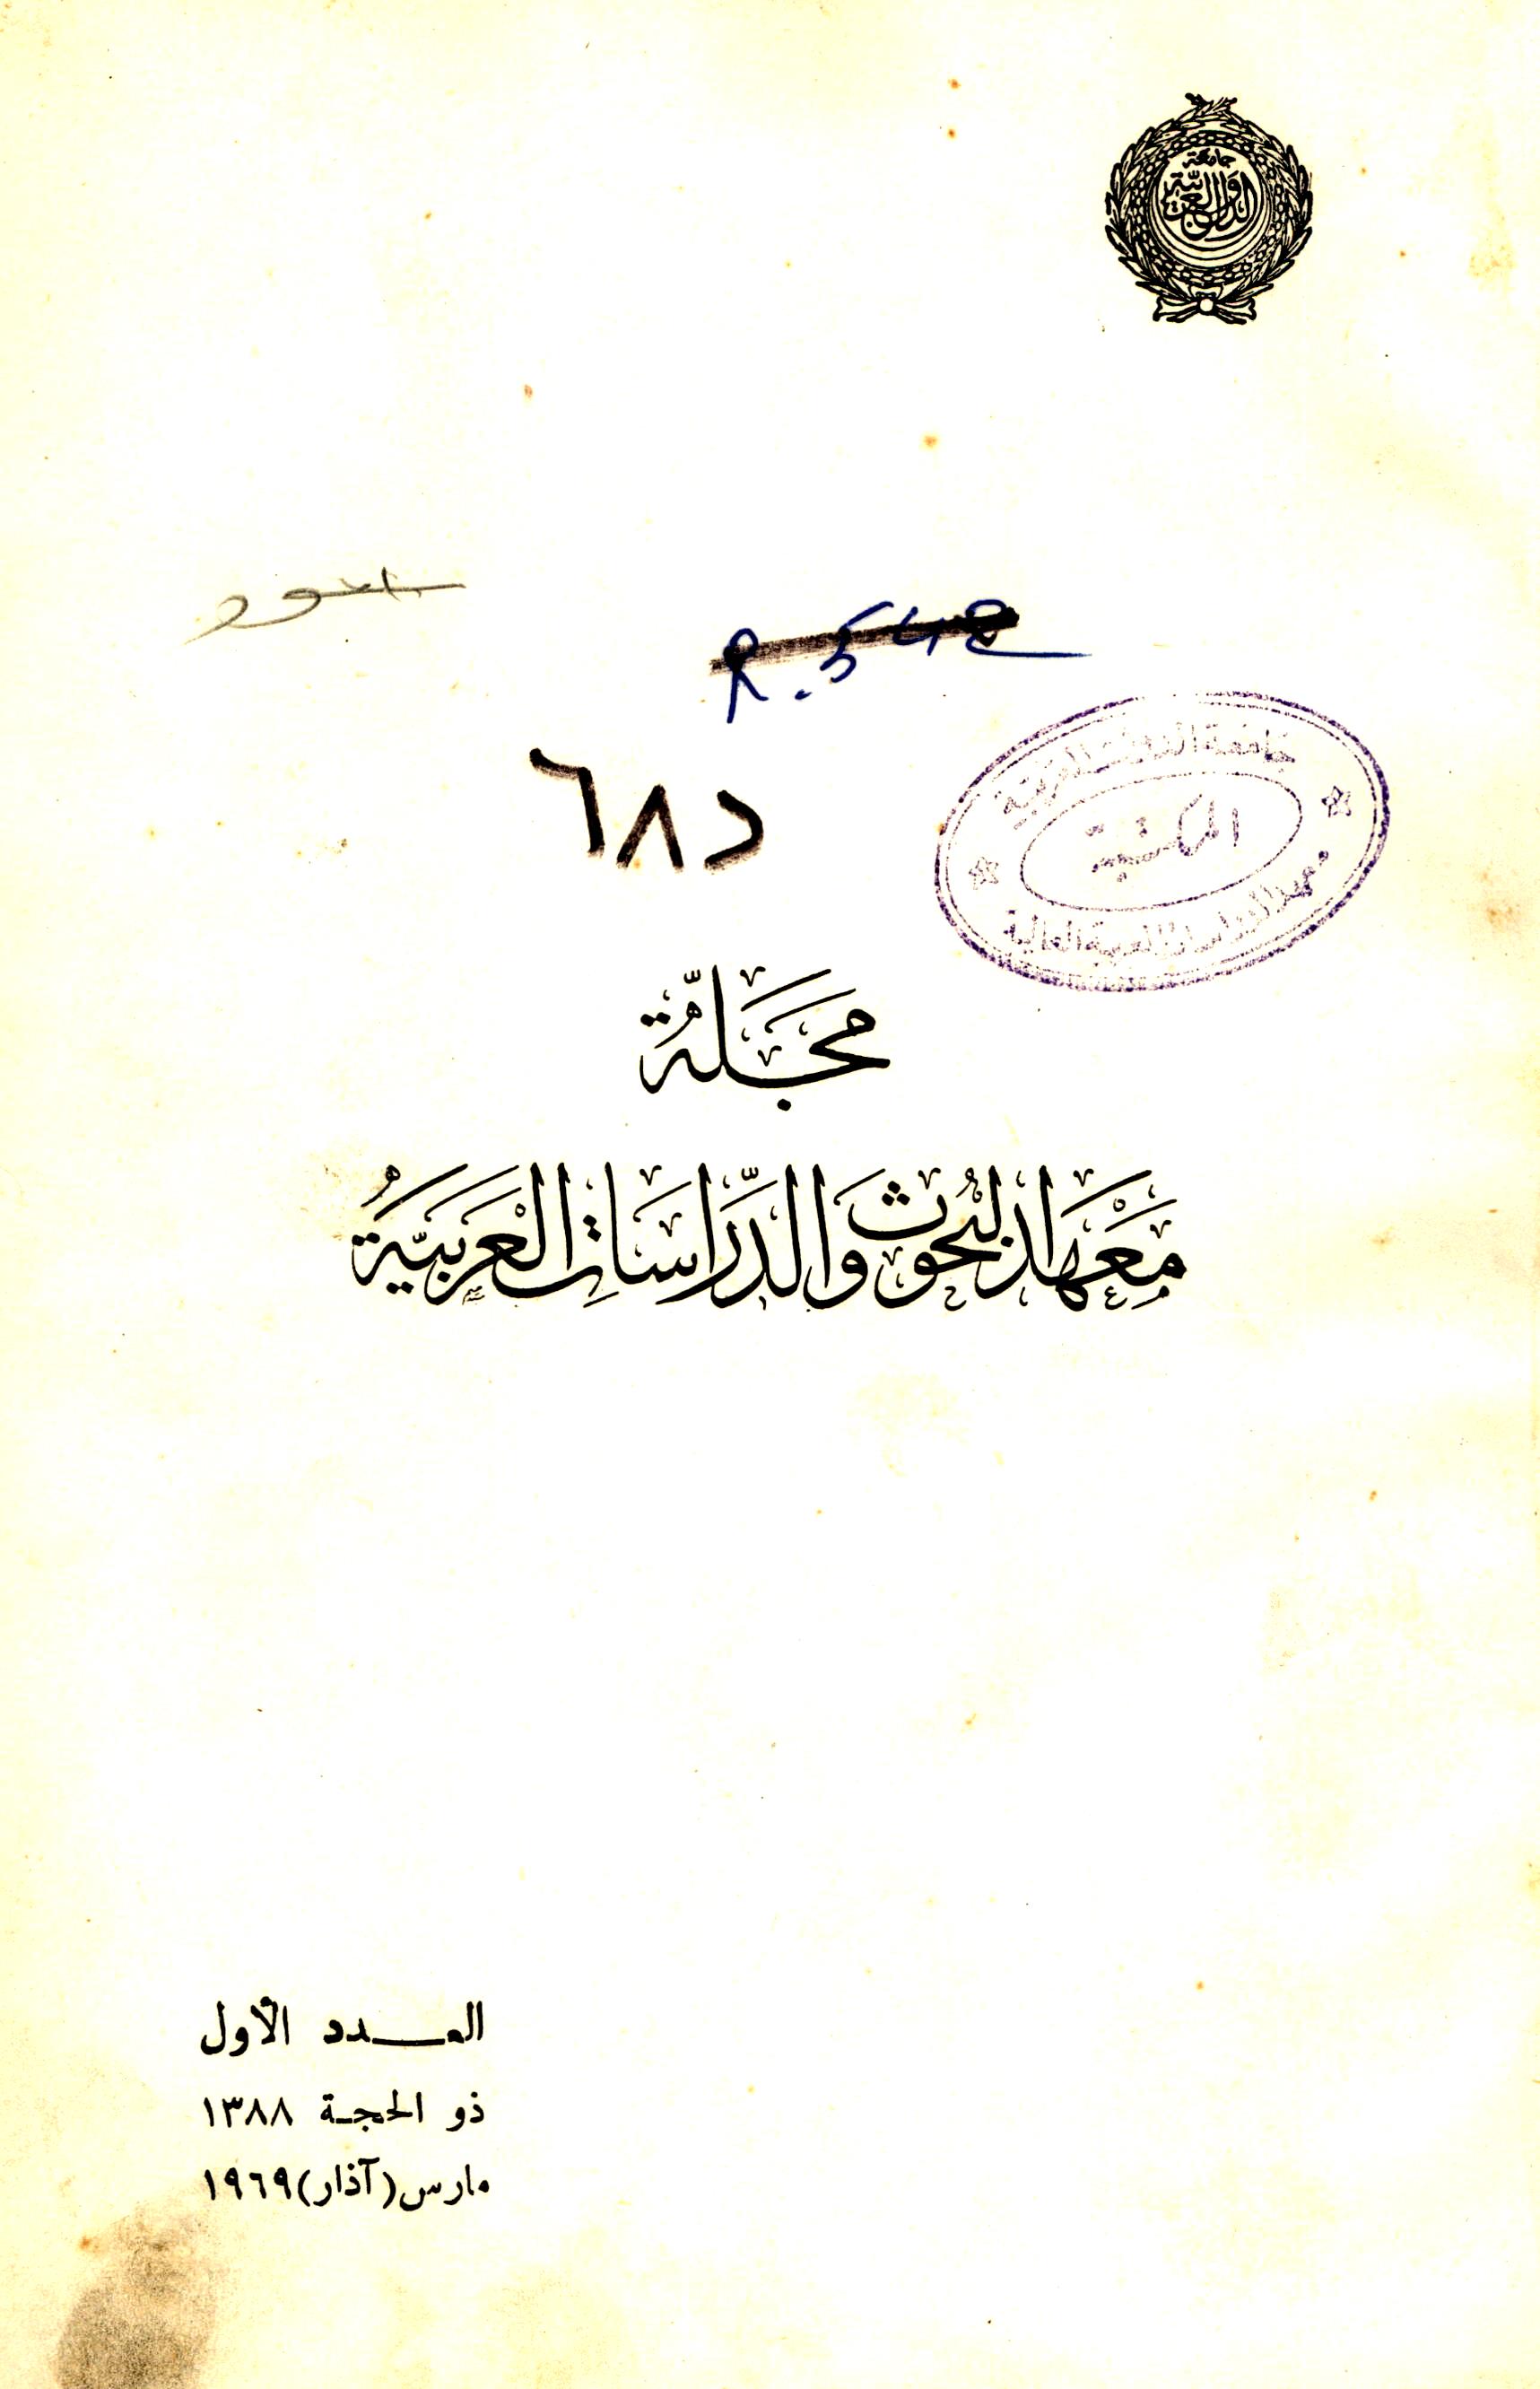 جامعة
الدول العربية
R. 542
٦٨د
جامعة الدول العربية
المكتبة
معهد الدراسات العربية العالية
مَجَلَّةُ
مَعْهَد البُحُوث وَالدِّرَاسَاتِ الْعَرَبِيَّةُ
العـــدد الأول
ذو الحجـة ١٣٨٨
مارس (آذار) ١٩٦٩